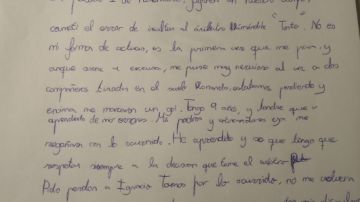 cometí el error de insultar al árbitro llamándole "Tonto". No es
mi forma de actuar, es la primera vez que me pasa, y
aunque suene a excusa, me puse muy nervioso al ver a dos
compañeros tirados en el suelo llorando, estábamos perdiendo y
encima me marcaron un gol. Tengo 9 años, y tendré que
aprendiendo de mis errores. Mis padres y entrenadores
regañaron con lo ocurrido. He aprendido y se que tengo que
respetar siempre a la decisión que tome el arbitro
Pido perdon a Ignacio Tomás por lo ocurrido, no me volverá